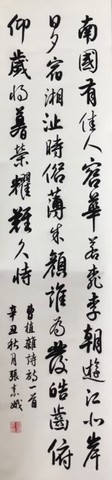 南國有佳人容華若桃李朝遊江北岸
日夕宿湘沚時俗薄朱顏誰為發皓齒俯
仰歲將暮榮耀難久恃
曹植雜詩一首
辛丑秋月張娥